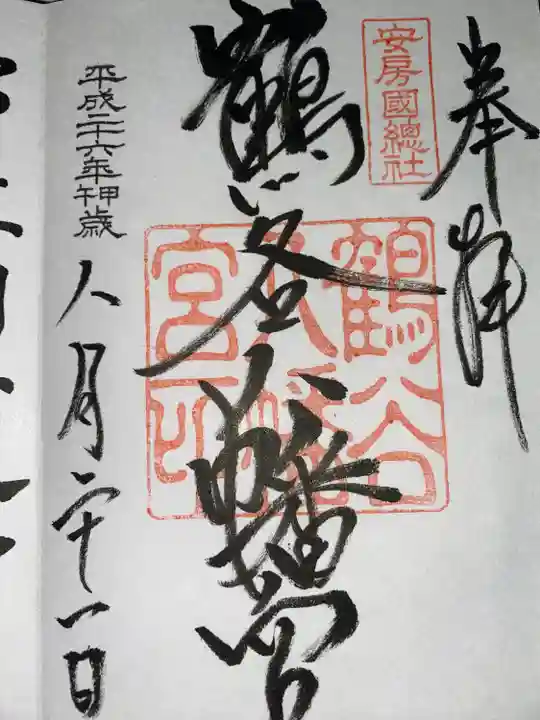 奉拝
安房國總社
鶴谷八幡宮
鶴谷
八幡
宮印
平成二十六年甲午歳
八月二十一日